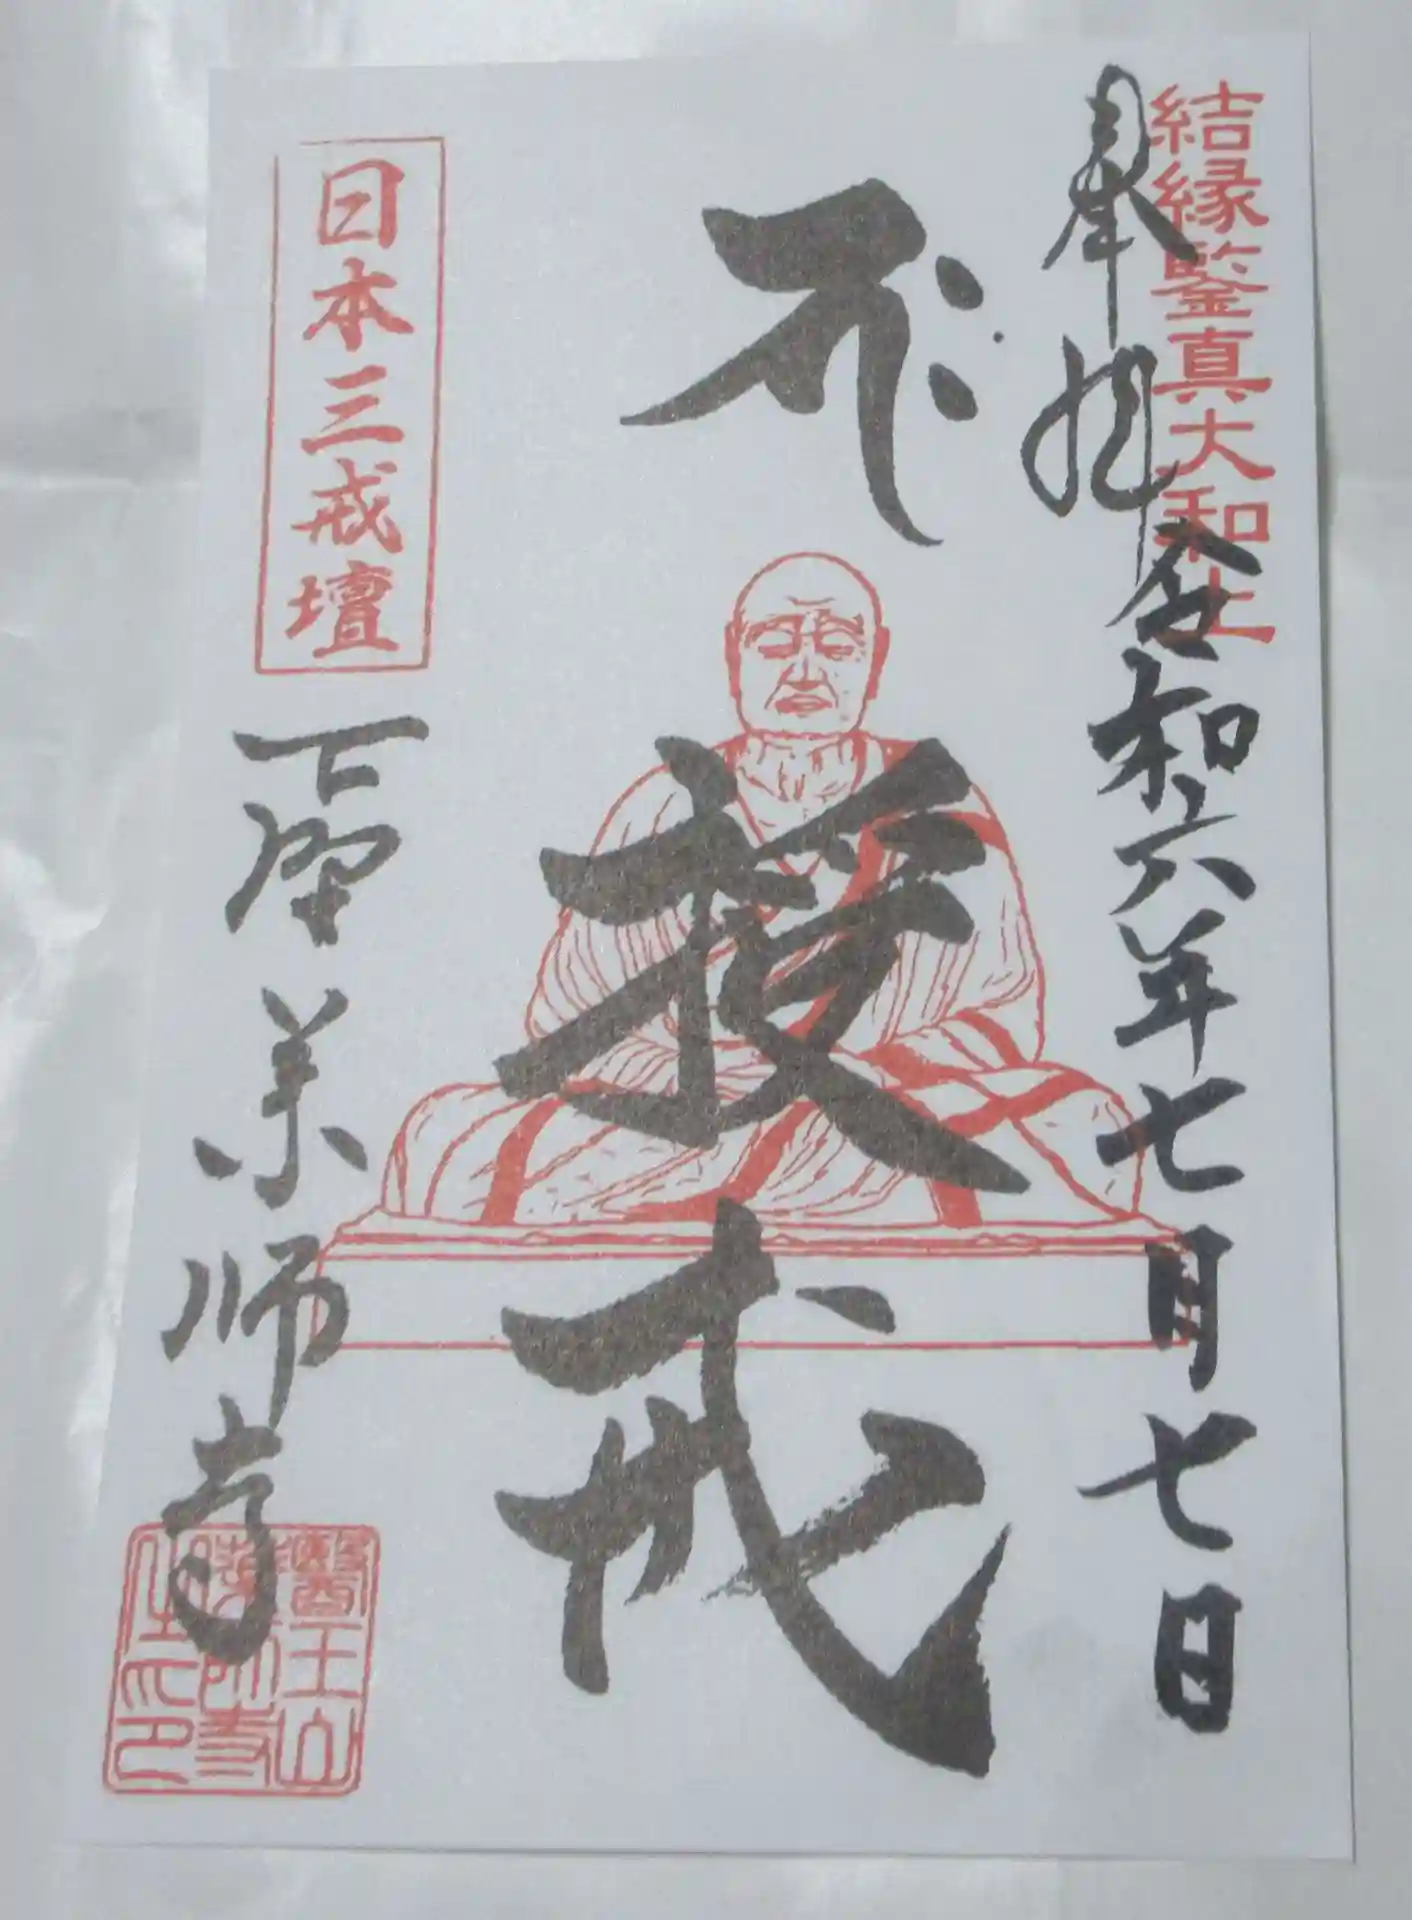 結縁鑒真大和上
奉拝
令和六年七月七日
授戒
日本三戒壇
下野薬師寺
醫王山
藥師寺